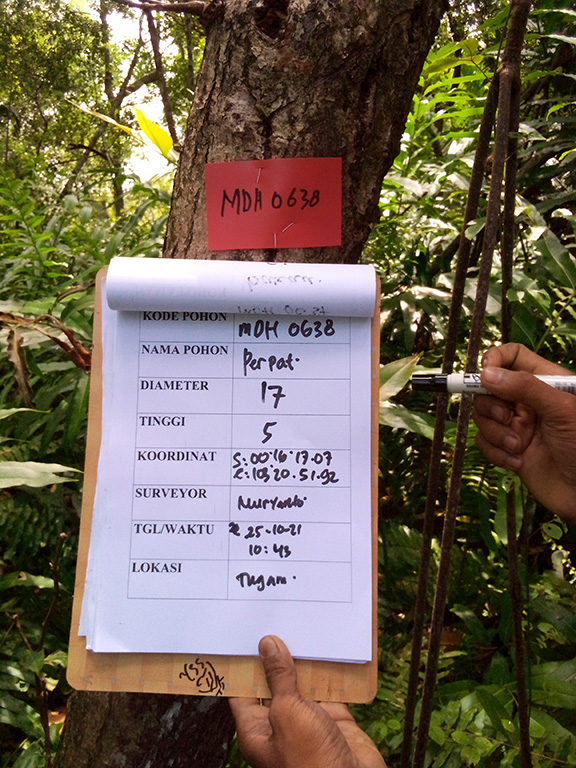 MDH 0638
KODE POHON MDH 0638
NAMA POHON Perpat.
DIAMETER 17
TINGGI 5
KOORDINAT S: 00°16'17.07
E: 103°20.51.92
SURVEYOR Nuryanto.
TGL/WAKTU 25-10-21
10:43
LOKASI